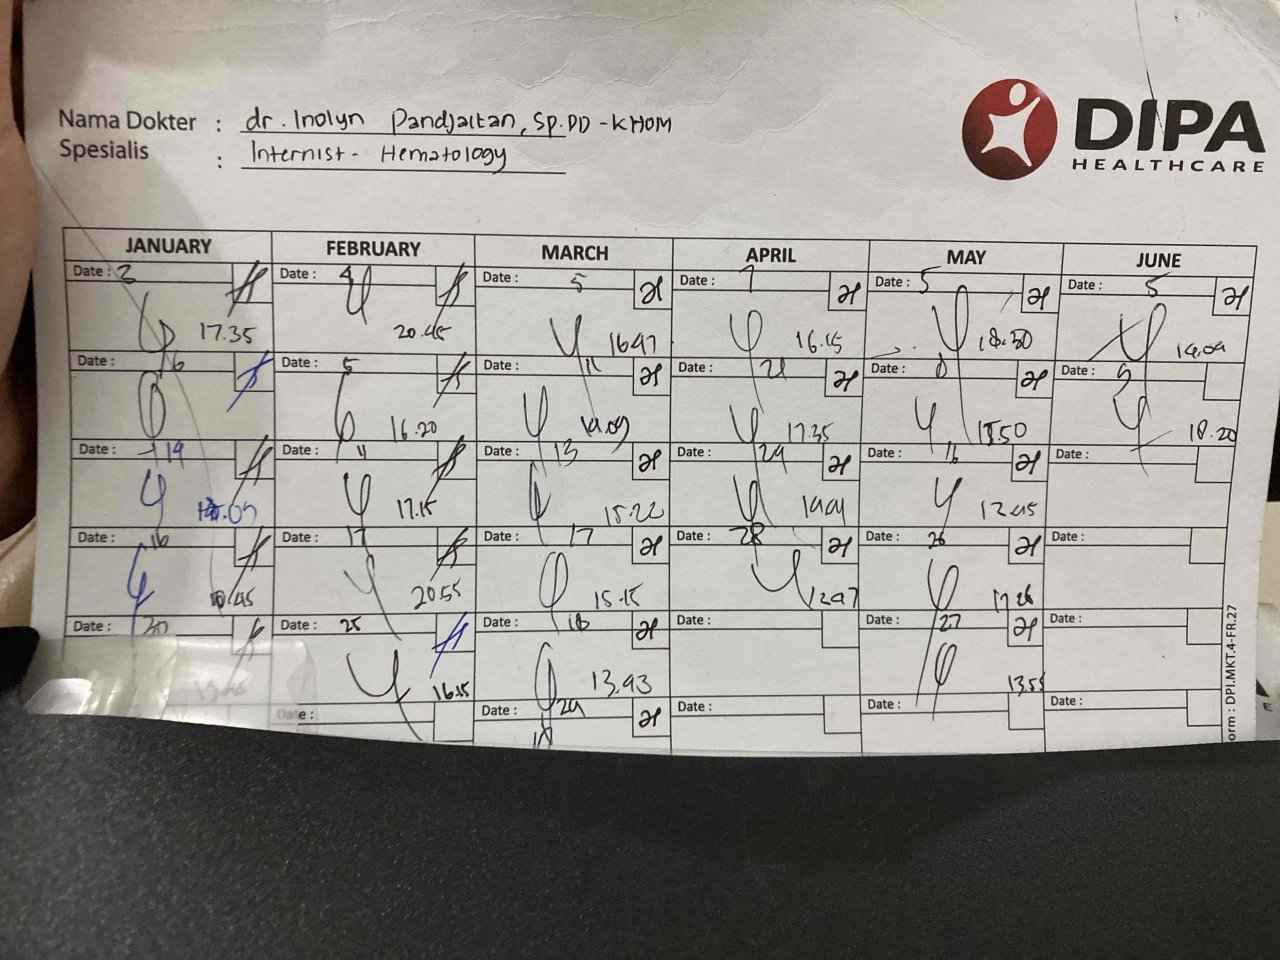 Nama Dokter : dr. Inolyn Pandjaitan, Sp.PD-KHOM
Spesialis : Internist - Hematology
DIPA
HEALTHCARE
JANUARY FEBRUARY MARCH APRIL MAY JUNE
Date : Date : 4 Date : 5 Date : 7 Date : 5 Date : 5
17.35 20.45 16.47 16.15 18.30 14.04
Date : 16 Date : 5 Date : 11 Date : 21 Date : 8 Date : 9
16.20 14.09 17.35 18.20
Date : 14 Date : 11 Date : 13 Date : 24 Date : Date :
17.15 15.22 14.04 12.45
Date : 16 Date : 17 Date : 17 Date : 28 Date : 26 Date :
20.55 15.15 12.47 17.26
Date : 20 Date : 25 Date : 18 Date : Date : 27 Date :
16.15 13.43 13.55
Date : Date : 24 Date : Date : Date :
orm : DPI.MKT.4-FR.27